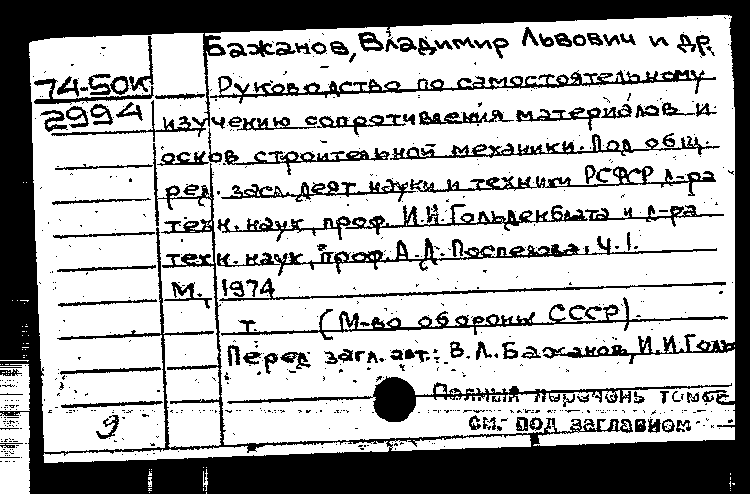 Бажанов, Владимир Львович и др.
74-50К
2994
Руководство по самостоятельному
изучению сопротивления материалов и
основ строительной механики. Под общ.
ред. засл. деят. науки и техники РСФСР д-ра
техн. наук, проф. И.И. Гольденблата и д-ра
техн. наук, проф. А.Д. Поспелова. Ч. 1.
М., 1974
т. (М-во обороны СССР).
Перед загл. авт.: В.Л. Бажанов, И.И. Голь
Полный перечень томов
см. под заглавием
9